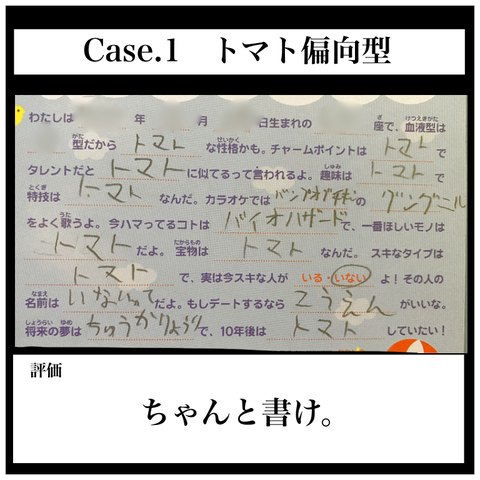 Case.1 トマト偏向型
わたしは 年 月 日生まれの 座で、血液型は
型だから トマト な性格かも。チャームポイントは トマト で
タレントだと トマト に似てるって言われるよ。趣味は トマト で
特技は トマト なんだ。カラオケでは バンプオブチキンの グングニル
をよく歌うよ。今ハマってるコトは バイオハザード で、一番ほしいモノは
トマト だよ。宝物は トマト なんだ。スキなタイプは
トマト で、実は今スキな人が いる・いない よ！その人の
名前は いないって だよ。もしデートするなら こうえん がいいな。
将来の夢は ちゅうかりょうり で、10年後は トマト していたい！
評価
ちゃんと書け。